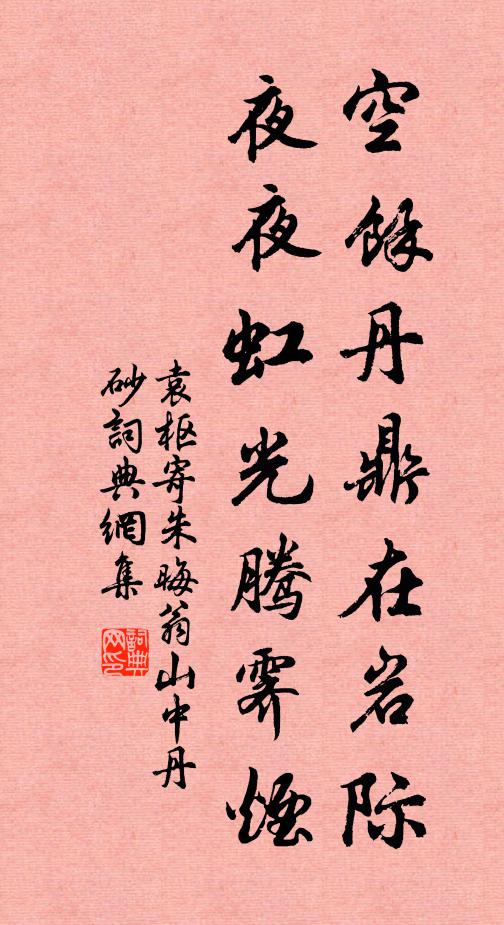 空餘丹鼎在岩际
夜夜虹光腾霁煙
袁枢寄朱晦翁山中丹
砂詞典網集
詞典
网印